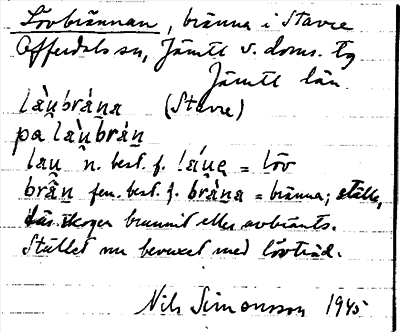 Lövbrännan, bränna i Stavre
Offerdals sn, Jämtl. v. doms. tg
Jämtl. län
làu̯brán̲a (Stavre)
pa làu̯brán̲
lau̯ n. best. f. láu̯e = löv
brân̲ fem. best. f. brần̲a = bränna; ställe,
där skogen brunnit eller avbränts.
Stället nu bevuxet med lövträd.
Nils Simonsson 1945